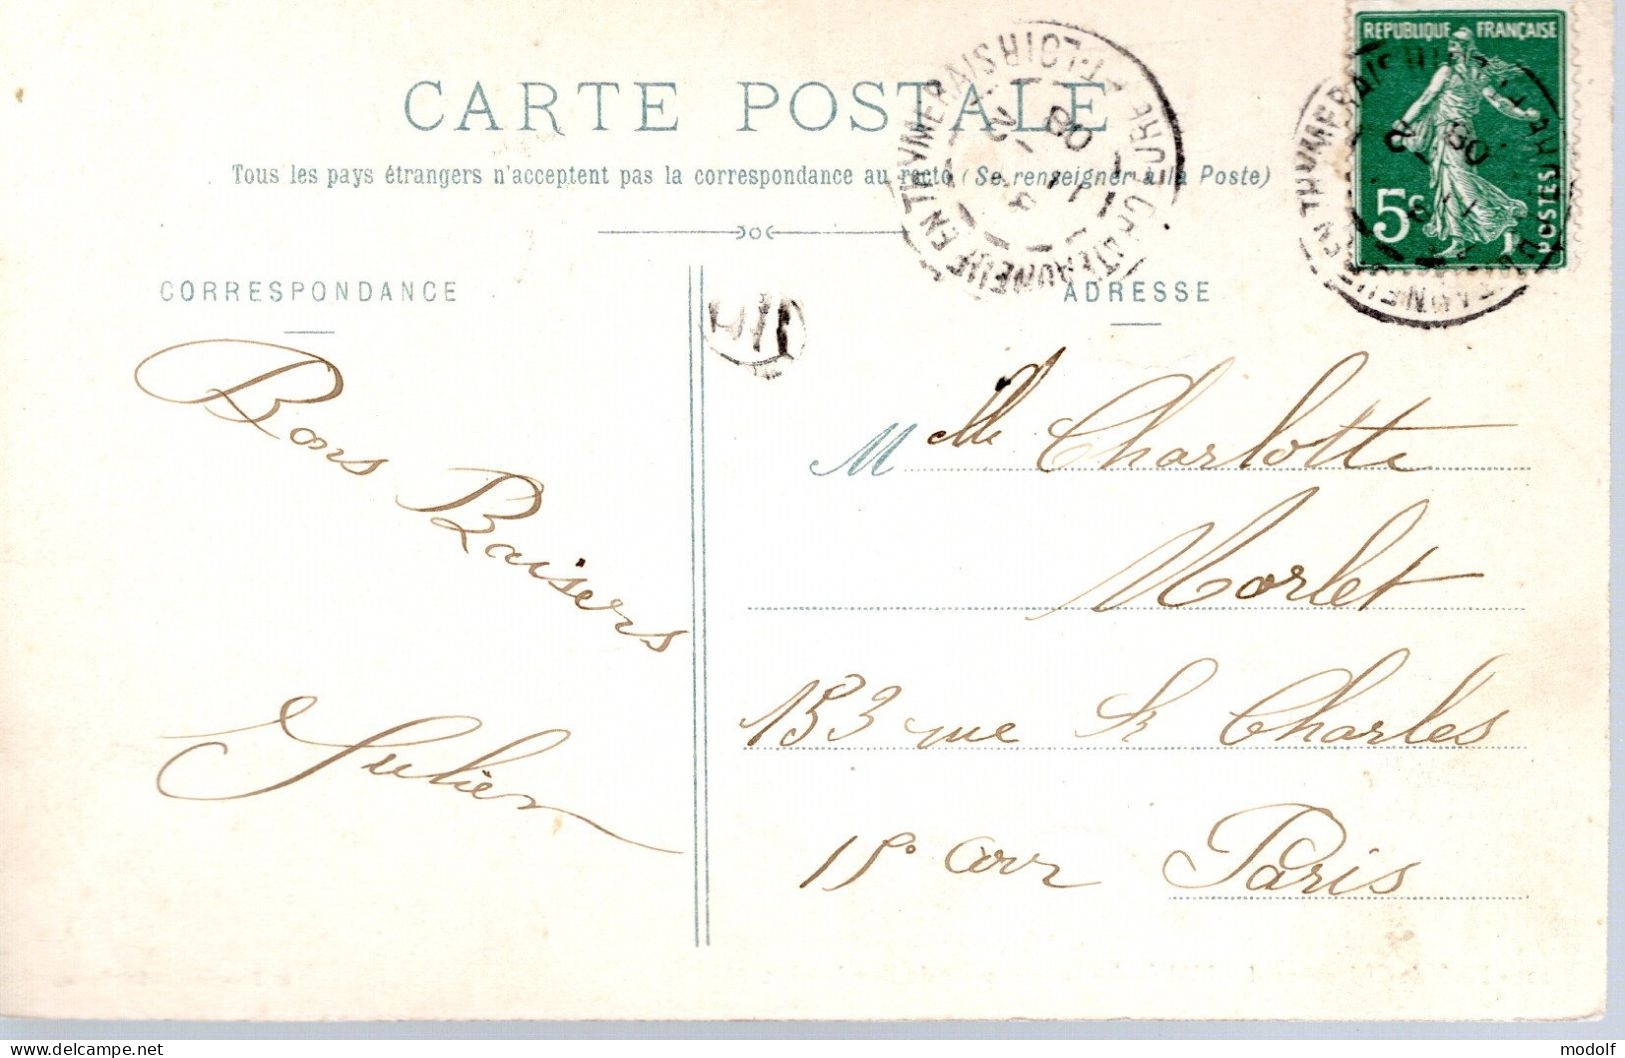 CARTE POSTALE
Tous les pays étrangers n'acceptent pas la correspondance au recto (Se renseigner à la Poste)
REPUBLIQUE FRANÇAISE
5c
POSTES
CHATEAUNEUF EN THYMERAIS
EURE-ET-LOIR
CORRESPONDANCE
ADRESSE
Bons Baisers
Julien
Mlle Charlotte
Morlet
153 rue St Charles
15e arr Paris
modolf